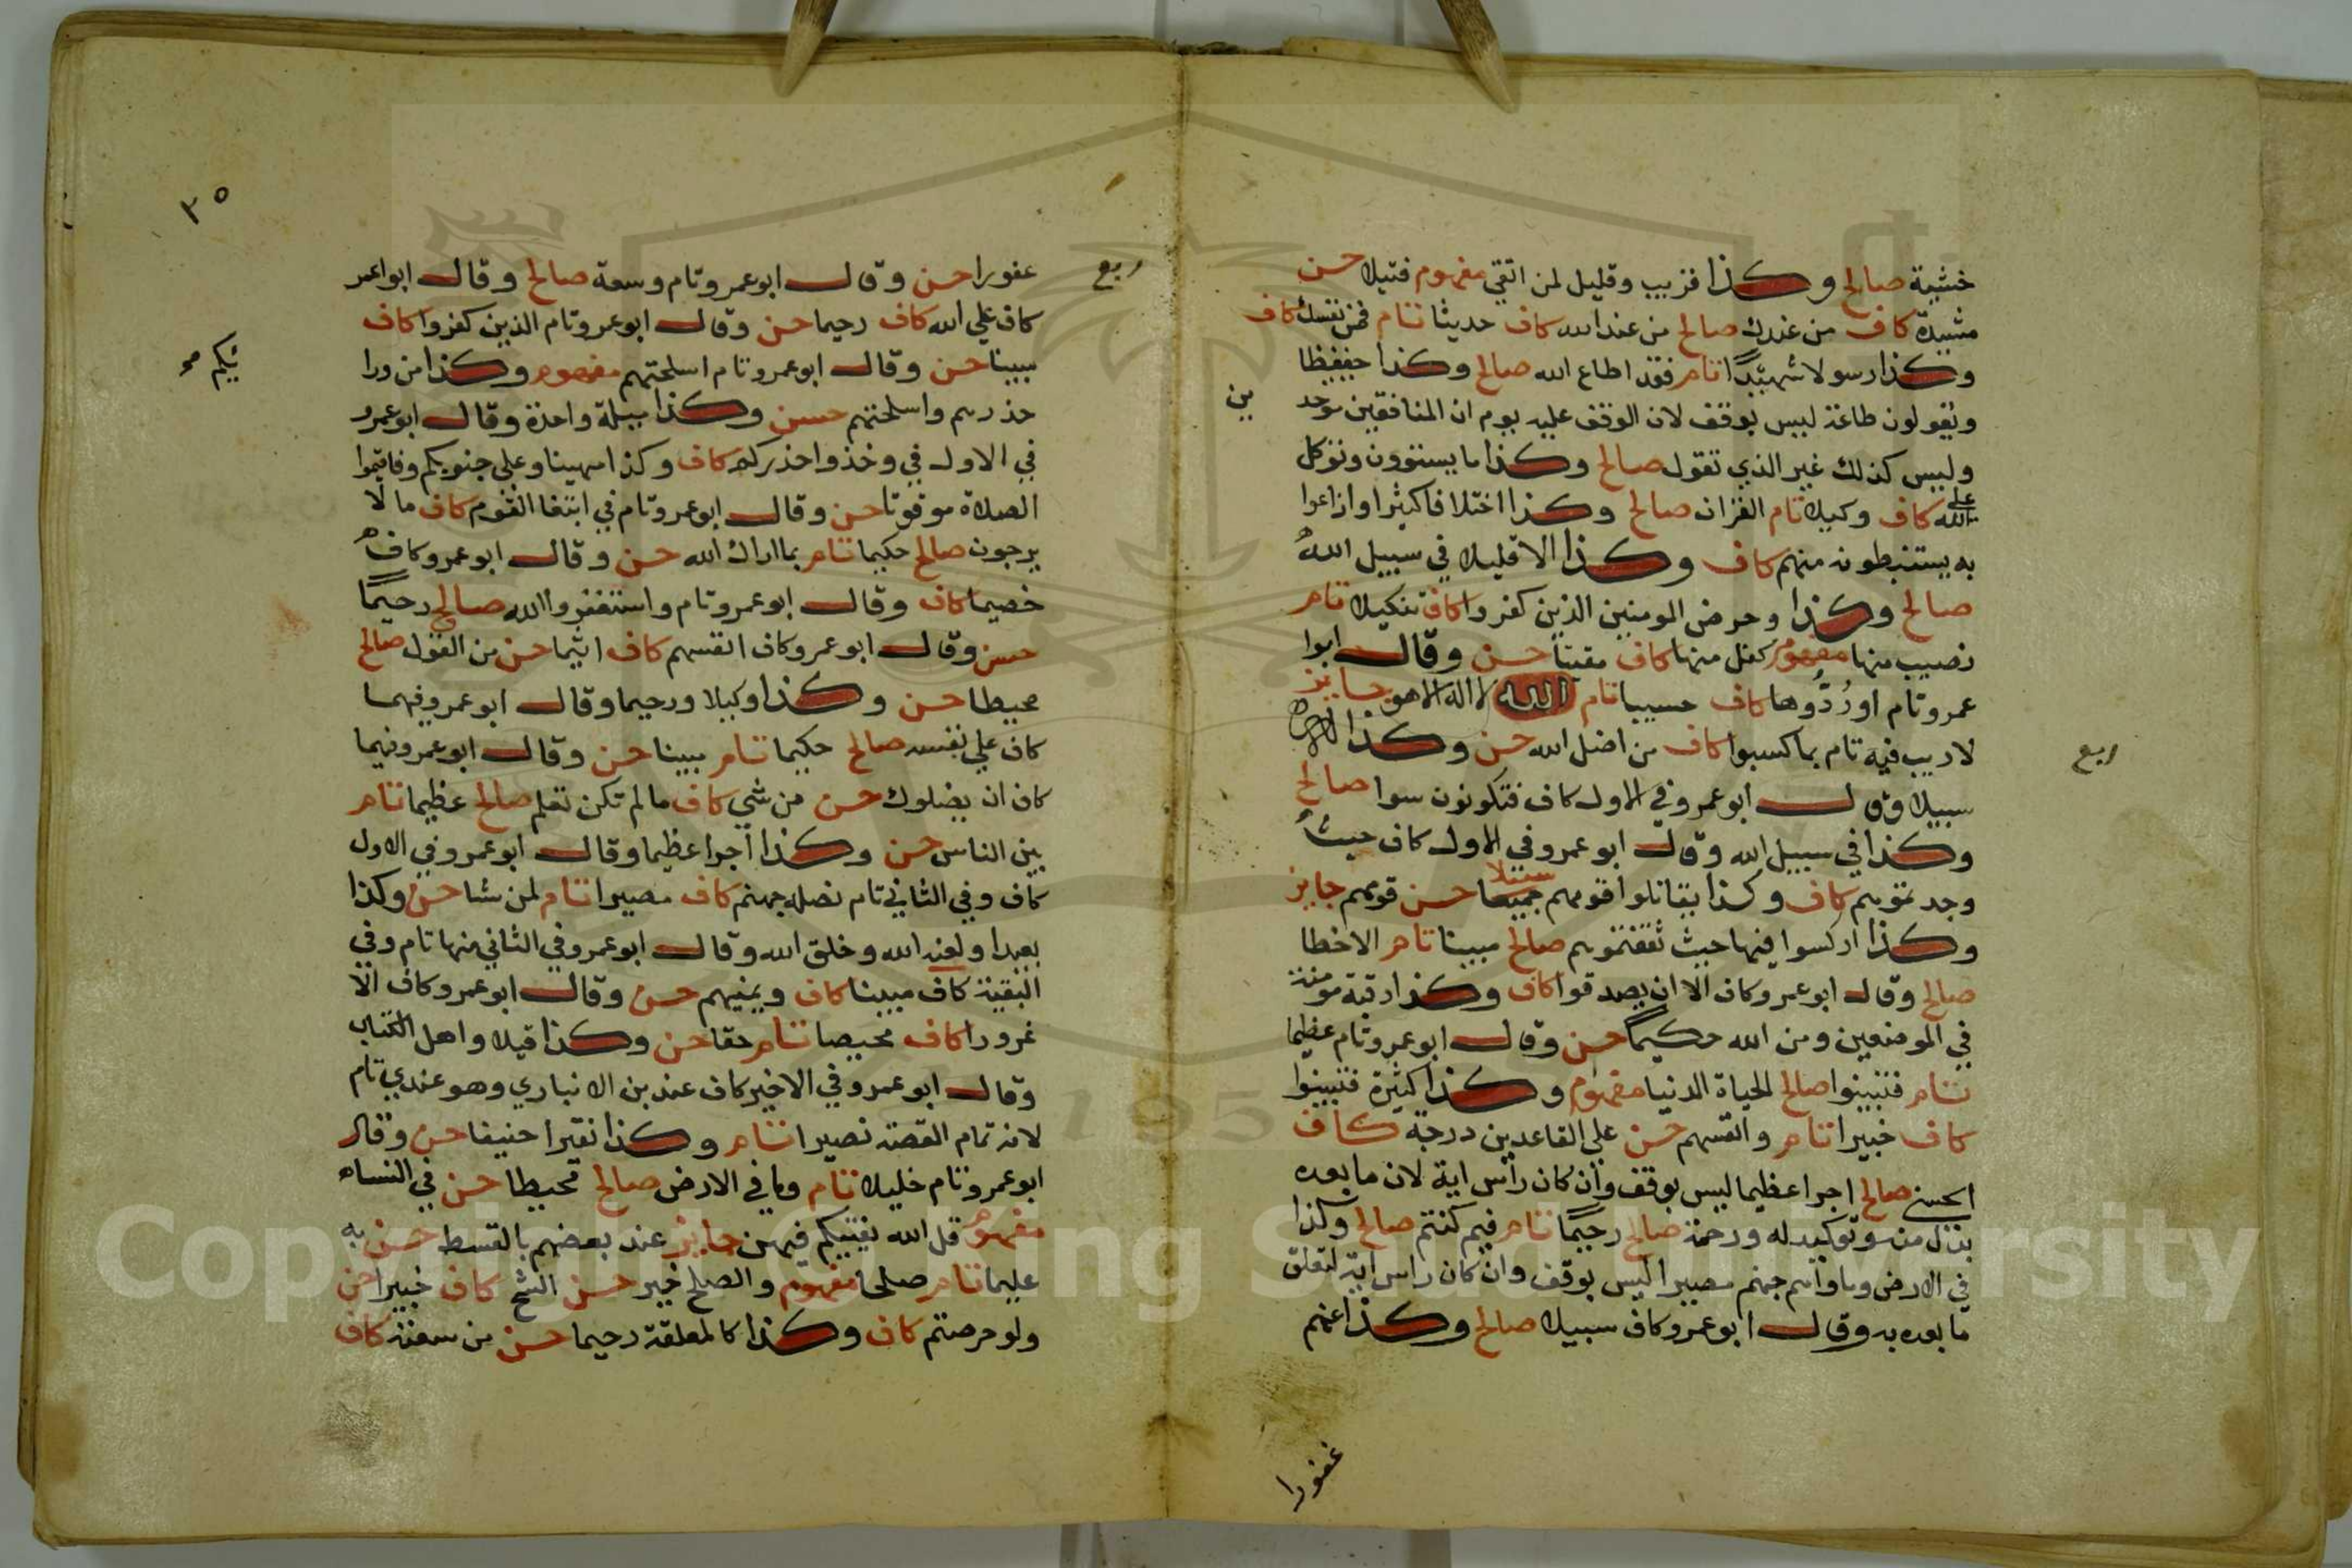 خشية صالح وكذا قريب وقليل لمن اتقي مفهوم فتيلا حسن
مشيدة كاف من عندك صالح من عند الله كاف حديثا تام فمن نفسك كاف
وكذا رسولا شهيدا تام فقد اطاع الله صالح وكذا حفيظا
ويقولون طاعة ليس بوقف لان الوقف عليه يوهم ان المنافقين موحد
ين
وليس كذلك غير الذي تقول صالح وكذا ما يبيتون وتوكل
علي الله كاف وكيلا تام القران صالح وكذا اختلافا كثيرا واذاعوا
به يستنبطونه منهم كاف وكذا الا قليلا في سبيل الله
صالح وكذا وحرض المومنين الذين كفروا كاف تنكيلا تام
نصيب منها مفهوم كفل منها كاف مقيتا حسن وقال ابوا
عمرو تام او ردوها كاف حسيبا تام الله لا اله الا هو جايز
ربع
لا ريب فيه تام بما كسبوا كاف من اضل الله حسن وكذا
سبيلا وقال ابو عمرو في الاول كاف فتكونون سوا صالح
وكذا في سبيل الله وقال ابو عمرو في الاول كاف حيث
وجدتموهم كاف وكذا يقاتلوا قومهم جميعا سبيلا حسن قومهم جايز
وكذا اركسوا فيها حيث ثقفتموهم صالح مبينا تام الا خطا
صالح وقال ابو عمرو كاف الا ان يصدقوا كاف وكذا رقبة مومنة
في الموضعين ومن الله حكيما حسن وقال ابو عمرو تام عظيما
تام فتبينوا صالح الحياة الدنيا مفهوم وكذا كثيرة فتبينوا
كاف خبيرا تام وانفسهم حسن علي القاعدين درجة كاف
الحسني صالح اجرا عظيما ليس بوقف وان كان راس اية لان ما بعده
بدل منه وتوكيد له ورحمة صالح رحيما تام فيم كنتم صالح وكذا
في الارض وماواهم جهنم مصيرا ليس بوقف وان كان راس اية لتعلق
ما بعده به وقال ابو عمرو كاف سبيلا صالح وكذا عنهم
غفورا
٣٥
ربع
عفورا حسن وقال ابو عمرو تام وسعة صالح وقال ابوا عمر
كاف علي الله كاف رحيما حسن وقال ابو عمرو تام الذين كفروا كاف
مبينا حسن وقال ابو عمرو تام اسلحتهم مفهوم وكذا من ورا
يكم صح
حذرهم واسلحتهم حسن وكذا ميلة واحدة وقال ابو عمرو
في الاول في وخذوا حذركم كاف وكذا مهينا وعلي جنوبكم وفاقيموا
الصلاة موقوتا حسن وقال ابو عمرو تام في ابتغا القوم كاف ما لا
يرجون صالح حكيما تام بما اراك الله حسن وقال ابو عمرو كاف
خصيما كاف وقال ابو عمرو تام واستغفروا الله صالح رحيما
حسن وقال ابو عمرو كاف انفسهم كاف اثيما حسن من القول صالح
محيطا حسن وكذا وكيلا ورحيما وقال ابو عمرو فيهما
كاف علي نفسه صالح حكيما تام مبينا حسن وقال ابو عمرو فيهما
كاف ان يضلوك حسن من شي كاف ما لم تكن تعلم صالح عظيما تام
بين الناس حسن وكذا اجرا عظيما وقال ابو عمرو في الاول
كاف وفي الثاني تام نصله جهنم كاف مصيرا تام لمن يشا حسن وكذا
بعيدا ولعنه الله وخلق الله وقال ابو عمرو في الثاني منها تام وفي
البقية كاف مبينا كاف ويمنيهم حسن وقال ابو عمرو كاف الا
غرورا كاف محيصا تام حقا حسن وكذا قيلا واهل الكتاب
وقال ابو عمرو في الاخير كاف عند بن الانباري وهو عندي تام
لانه تمام القصة نصيرا تام وكذا نقيرا حنيفا حسن وقال
ابو عمرو تام خليلا تام وما في الارض صالح محيطا حسن في النساء
مفهوم قل الله يفتيكم فيهن جايز عند بعضهم بالقسط حسن به
عليما تام صلحا مفهوم والصلح خير حسن الشح كاف خبيرا حسن
ولو حرصتم كاف وكذا كالمعلقة رحيما حسن من سعته كاف
Copyright © King Saud University